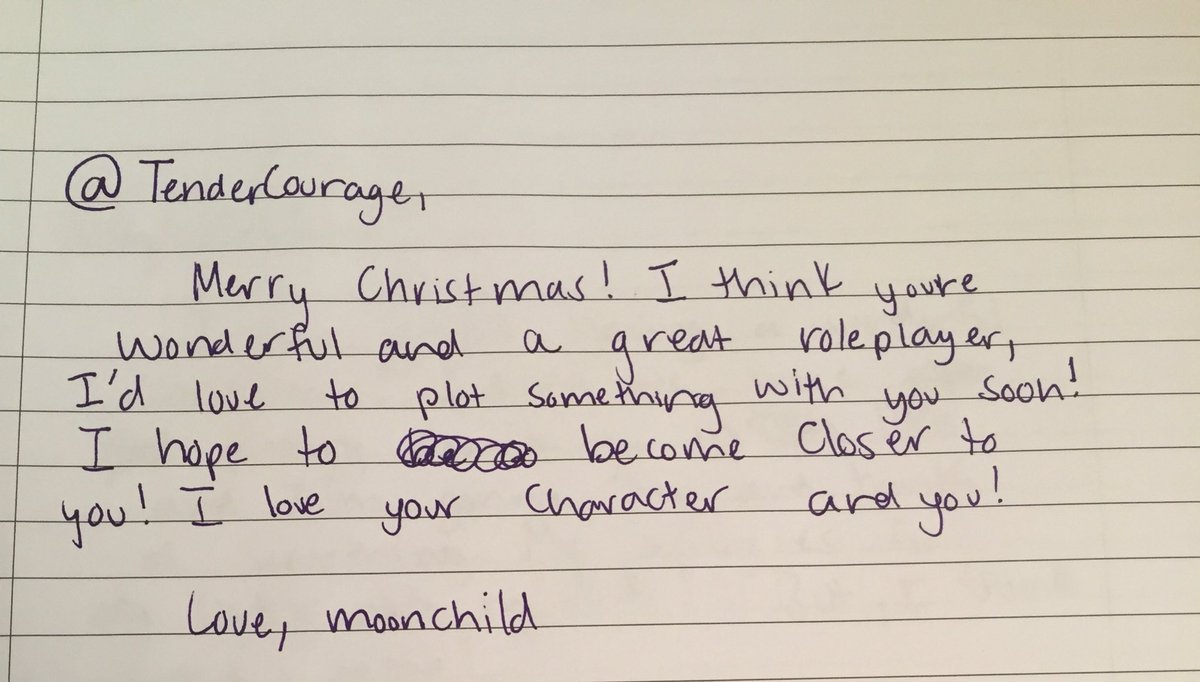 @TenderCourage,
Merry Christmas! I think youre
wonderful and a great roleplayer,
I'd love to plot something with you soon!
I hope to become closer to
you! I love your character and you!
Love, moonchild